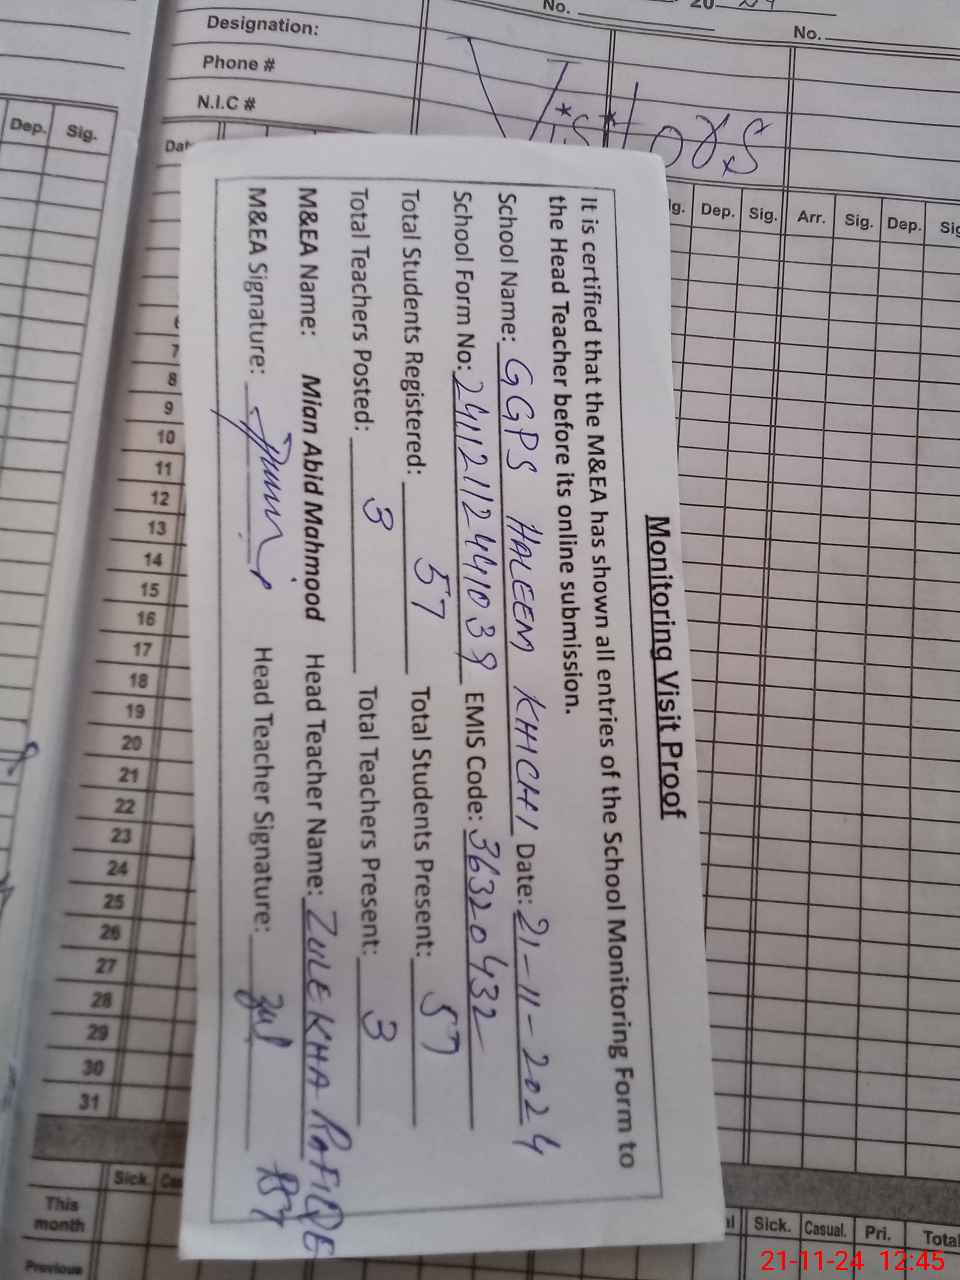 No.
20
No.
Designation:
Phone #
N.I.C #
Dep. Sig.
Dep. Sig. Arr. Sig. Dep.
Monitoring Visit Proof
It is certified that the M&EA has shown all entries of the School Monitoring Form to
the Head Teacher before its online submission.
School Name: GGPS HALEEM KHICHI Date: 21-11-2024
School Form No: EMIS Code: 36320432
Total Students Registered: 57 Total Students Present: 57
Total Teachers Posted: 3 Total Teachers Present: 3
M&EA Name: Mian Abid Mahmood Head Teacher Name: ZULEKHA RAFIQUE
M&EA Signature: Head Teacher Signature: Zul
7
8
9
10
11
12
13
14
15
16
17
18
19
20
21
22
23
24
25
26
27
28
29
30
31
Sick.
This
month
Previous
Sick. Casual. Pri. Total
21-11-24 12:45